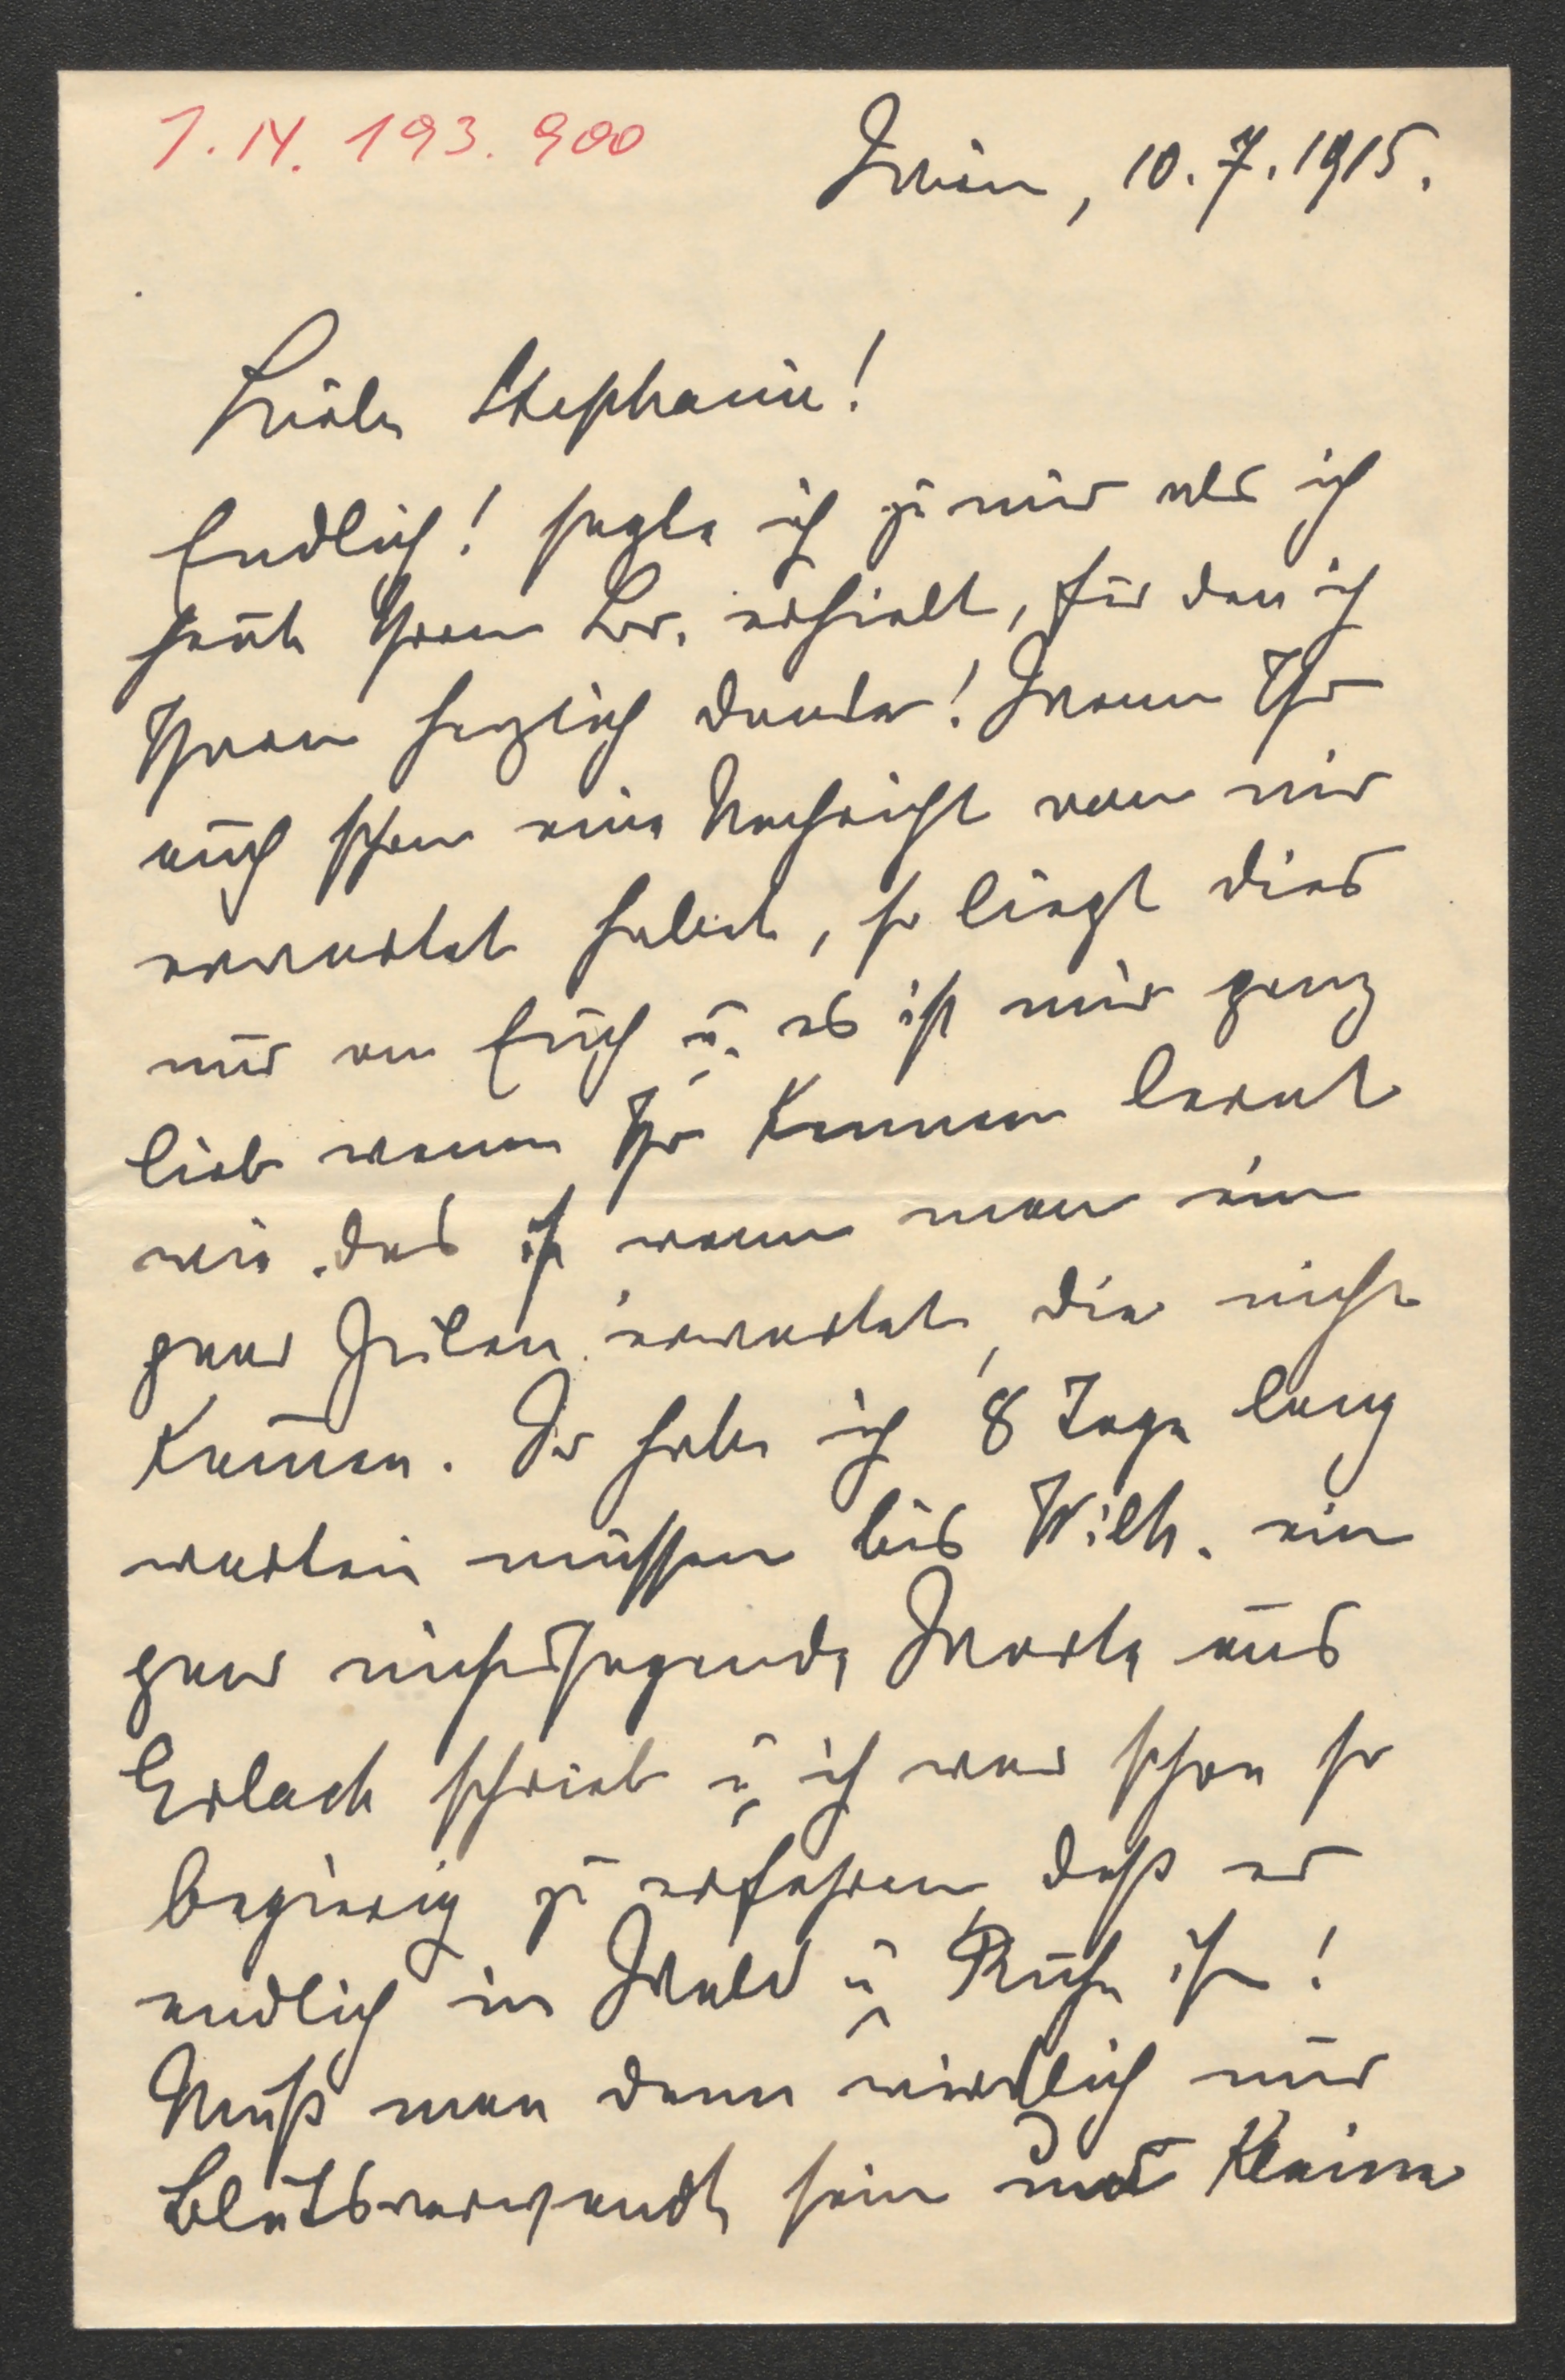 I.N. 193.900
Wien, 10.7.1915.
Liebe Stephanie!
Endlich! sagte ich zu mir als ich
heute Ihren Br. erhielt, für den ich
Ihnen herzlich danke! Wenn Ihr
auch schon eine Nachricht von mir
erwartet habet, so liegt dies
nur an Euch u. es ist mir ganz
lieb wenn Ihr kennen lernt
wie das ist wenn man ein
paar Zeilen erwartet, die nicht
kommen. Da habe ich 8 Tage lang
warten müssen bis Wilh. ein
paar nichtssagende Worte aus
Erlach schrieb u. ich war schon so
begierig zu erfahren, daß er
endlich in Wald u. Ruhe ist!
Muß man denn wirklich nur
Blutsverwandt sein und keine